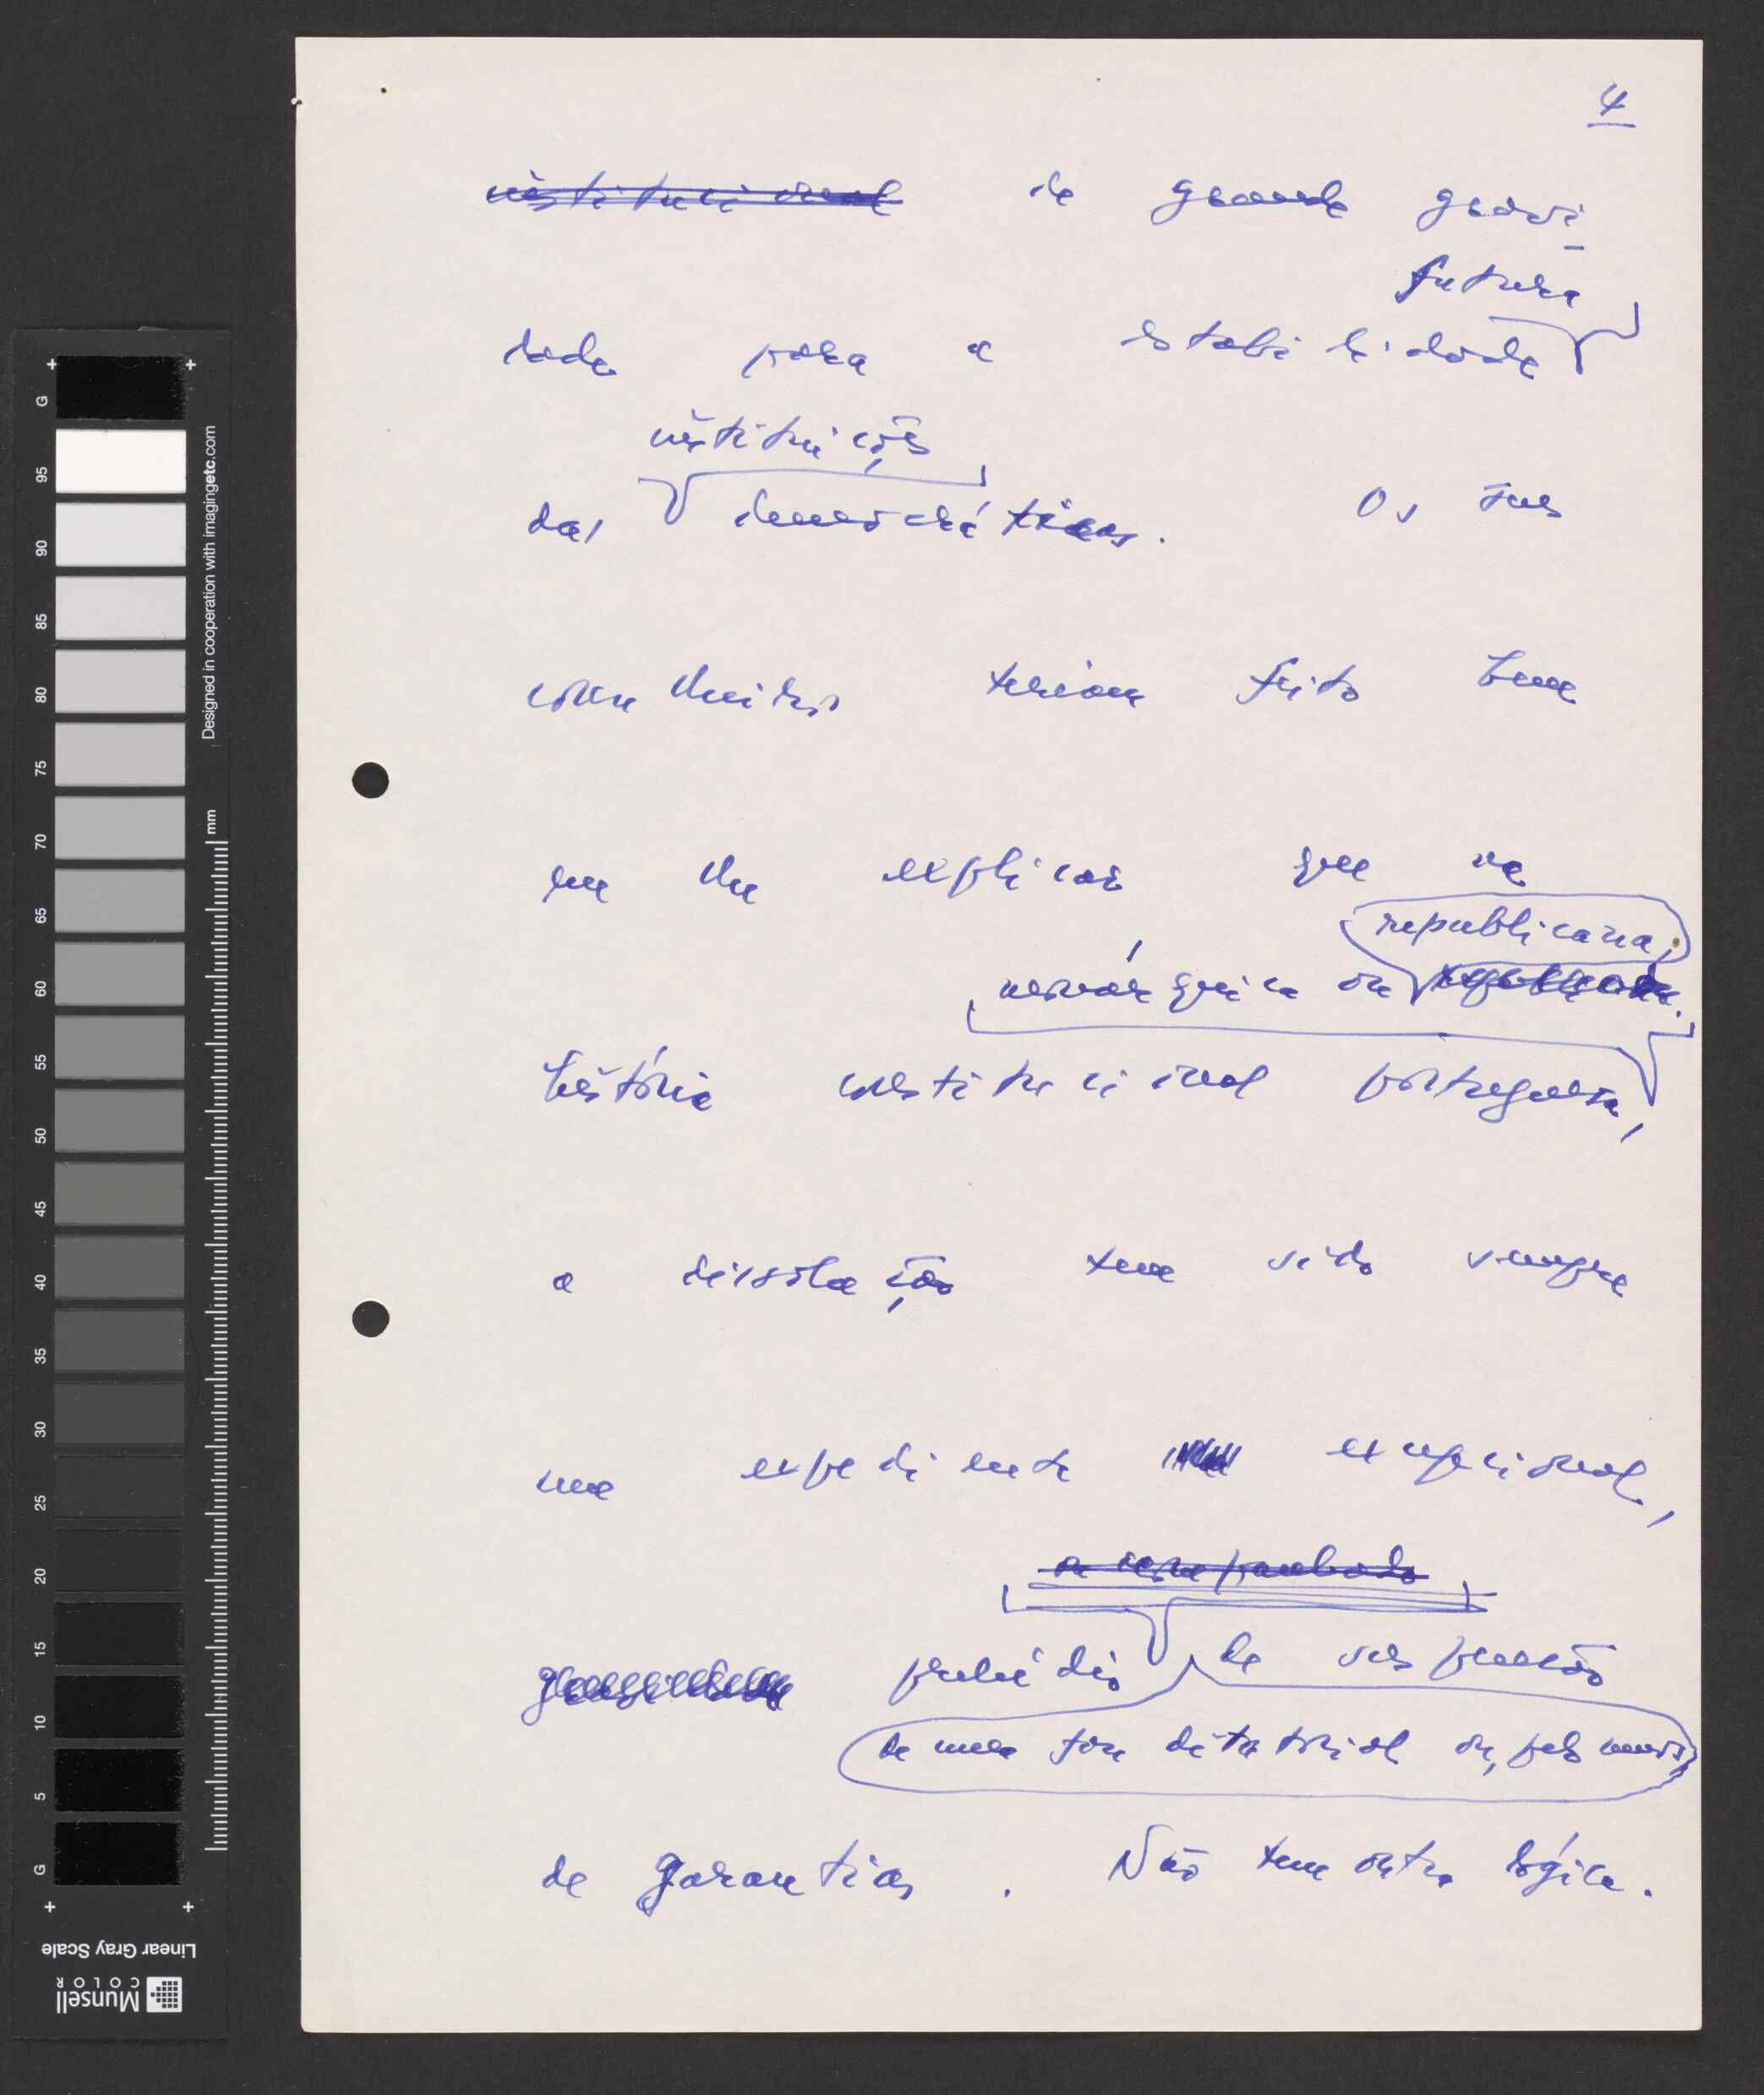 4
institucional de grande gravi-
futura
dade para a estabilidade
instituições
das democráticas. Os seus
conselheiros teriam feito bem
em lhe explicar que na
republicana,
monárquica ou republicana.
história constitucional portuguesa,
a dissolução tem sido sempre
um expediente excepcional,
acompanhado
prelúdio de suspensão
de um tom ditatorial ou, pelo menos,
de garantias. Não tem outra lógica.
G
95
90
85
80
75
70
65
60
55
50
45
40
35
30
25
20
15
10
5
G
Designed in cooperation with imagingetc.com
mm
Linear Gray Scale
Munsell
COLOR